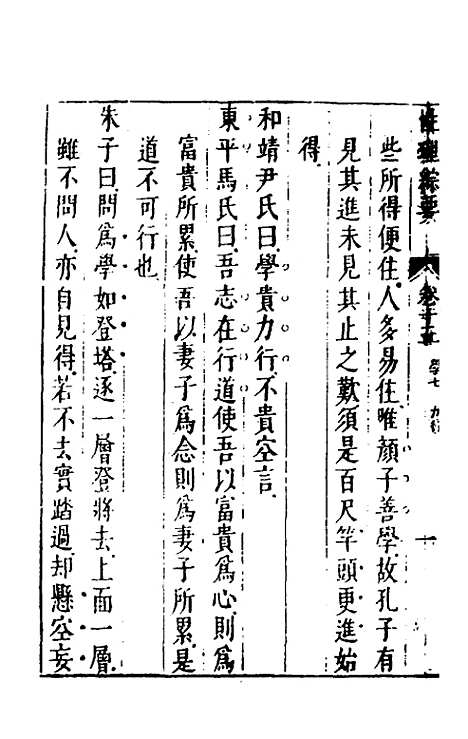 性理綜要 卷十五 學七 力行
些所得便住人多易住唯顔子善學故孔子有
見其進未見其止之歎須是百尺竿頭更進始
得
和靖尹氏曰學貴力行不貴空言
東平馬氏曰吾志在行道使吾以富貴爲心則爲
富貴所累使吾以妻子爲念則爲妻子所累是
道不可行也
朱子曰問爲學如登塔逐一層登將去上面一層
雖不問人亦自見得若不去實踏過却懸空妄